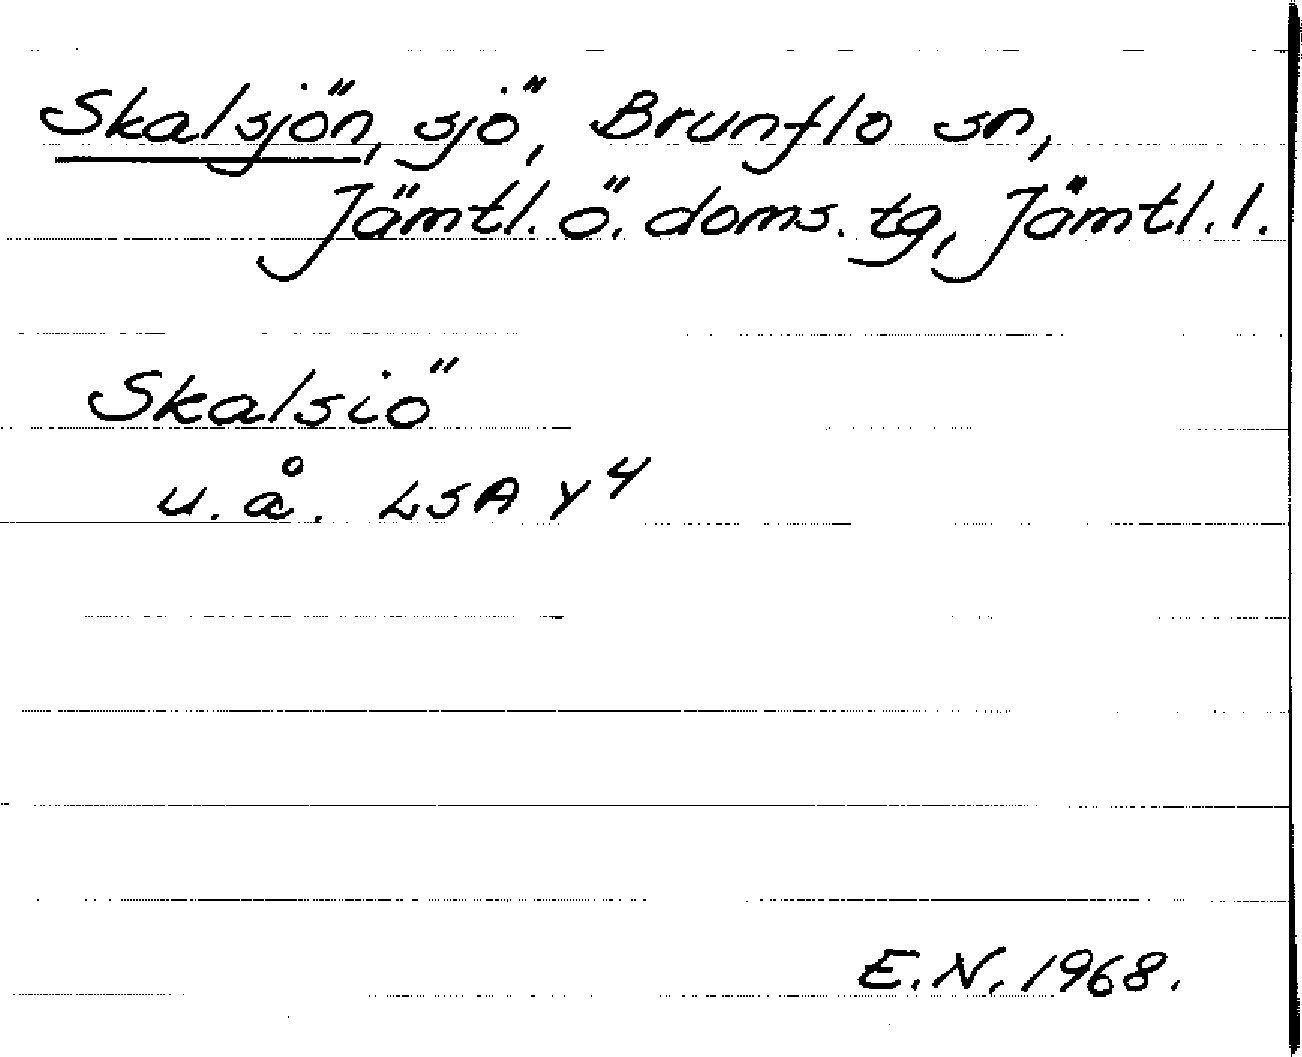 Skalsjön, sjö, Brunflo sn,
Jämtl. ö. doms. tg, Jämtl. l.
Skalsiö
u. å. LSA Y4
E.N. 1968.